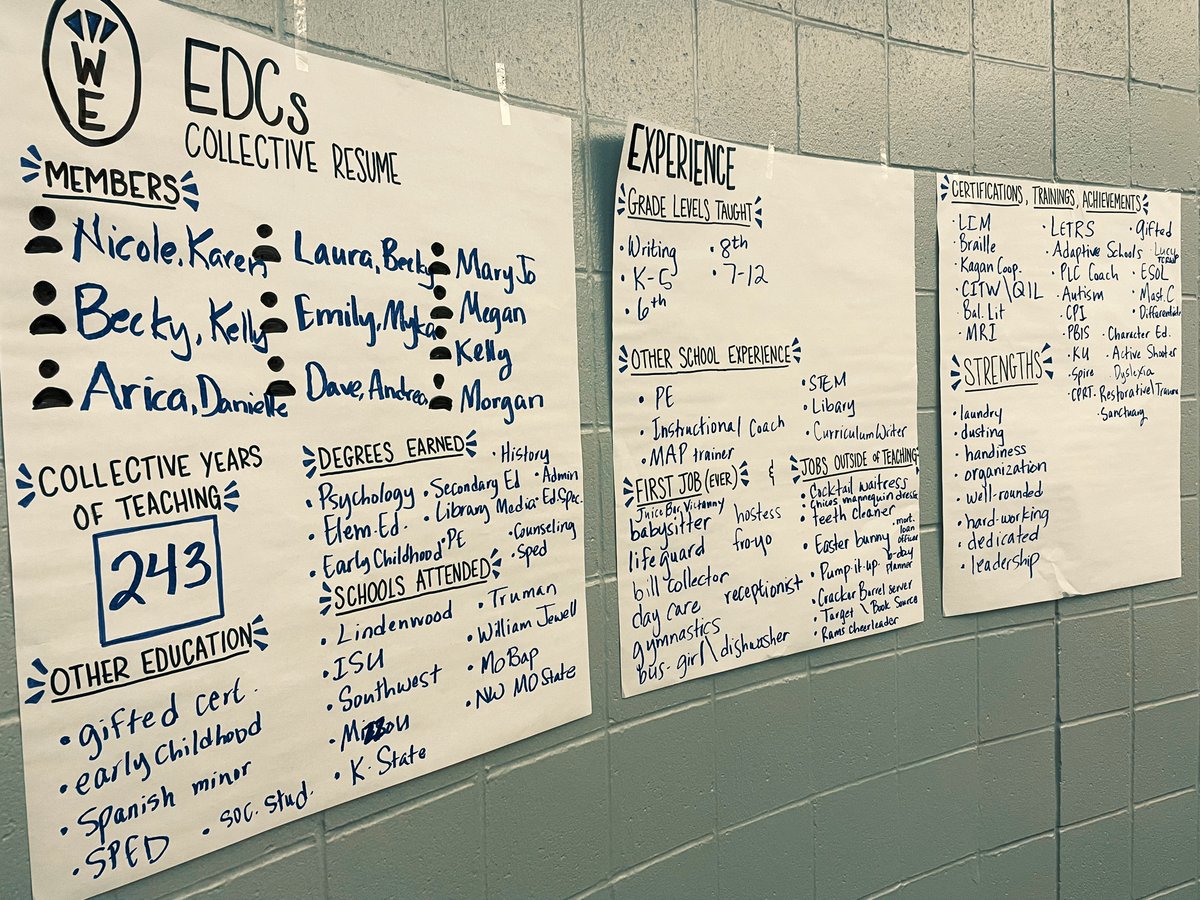 WE
EDCs
COLLECTIVE RESUME
MEMBERS
Nicole, Karen
Laura, Becky
Mary Jo
Becky, Kelly
Emily, Myka
Megan
Kelly
Arica, Danielle
Dave, Andrea
Morgan
COLLECTIVE YEARS
OF TEACHING
243
OTHER EDUCATION
• gifted cert.
• early childhood
• Spanish minor
• SPED
• soc. stud.
DEGREES EARNED
• Psychology
• Elem. Ed.
• Early Childhood
• Secondary Ed
• Library Media
• PE
• History
• Admin
• Ed. Spec.
• Counseling
• Sped
SCHOOLS ATTENDED
• Lindenwood
• ISU
• Southwest
• Mizzou
• K-State
• Truman
• William Jewell
• MoBap
• NW MO State
EXPERIENCE
GRADE LEVELS TAUGHT
• Writing
• K-5
• 6th
• 8th
• 7-12
OTHER SCHOOL EXPERIENCE
• PE
• Instructional Coach
• MAP trainer
• STEM
• Libary
• Curriculum Writer
FIRST JOB (EVER)
&
Juice Bar
babysitter
lifeguard
bill collector
day care
gymnastics
bus-girl\dishwasher
hostess
fro-yo
receptionist
JOBS OUTSIDE OF TEACHING
• Cocktail waitress
• teeth cleaner
• Easter bunny
• mort. loan officer
• Pump-it-up
b-day planner
• Cracker Barrel server
• Target \ Book Source
• Rams cheerleader
CERTIFICATIONS, TRAININGS, ACHIEVEMENTS
• LIM
• Braille
• Kagan Coop.
• CITW\QIL
• Bal. Lit
• MRI
• LETRS
• Adaptive Schools
• PLC Coach
• Autism
• CPI
• PBIS
• KU
• Spire
• CPRT
• gifted
• Lucy
• ESOL
• Mast. C
• Differentiate
• Character Ed.
• Active Shooter
• Dyslexia
• Restorative\Trauma
• Sanctuary
STRENGTHS
• laundry
• dusting
• handiness
• organization
• well-rounded
• hard-working
• dedicated
• leadership